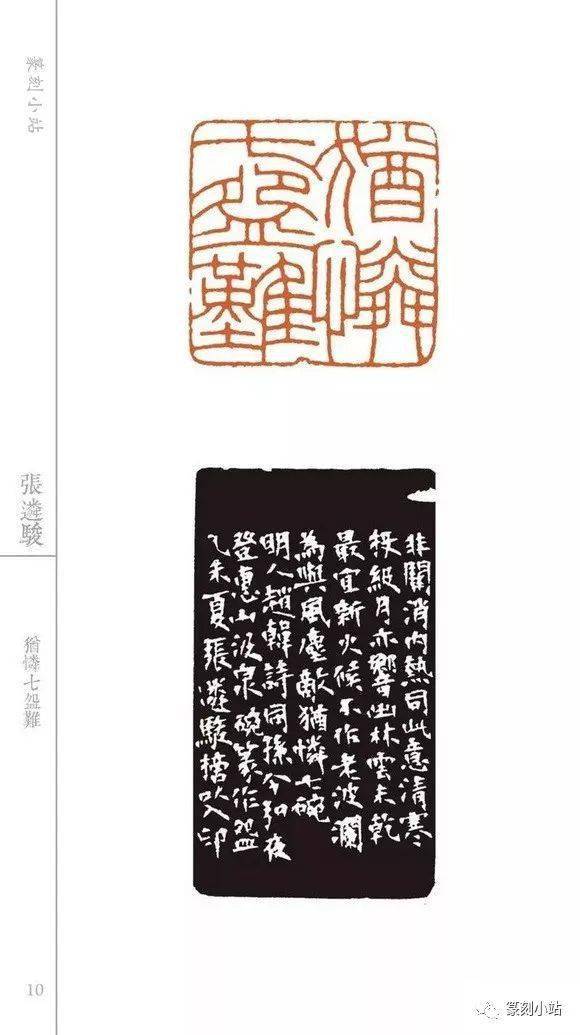 篆刻小站
張遴駿
猶憐七盌難
猶憐七盌難
非關消内熱同此意清寒
按級月亦響出林雲未乾
最宜新火候不作老波瀾
為與風塵敵猶憐七碗
明人趙韓詩同孫令弘夜
登惠山汲泉碗篆作盌
乙未夏張遴駿擣以入印
10
篆刻小站